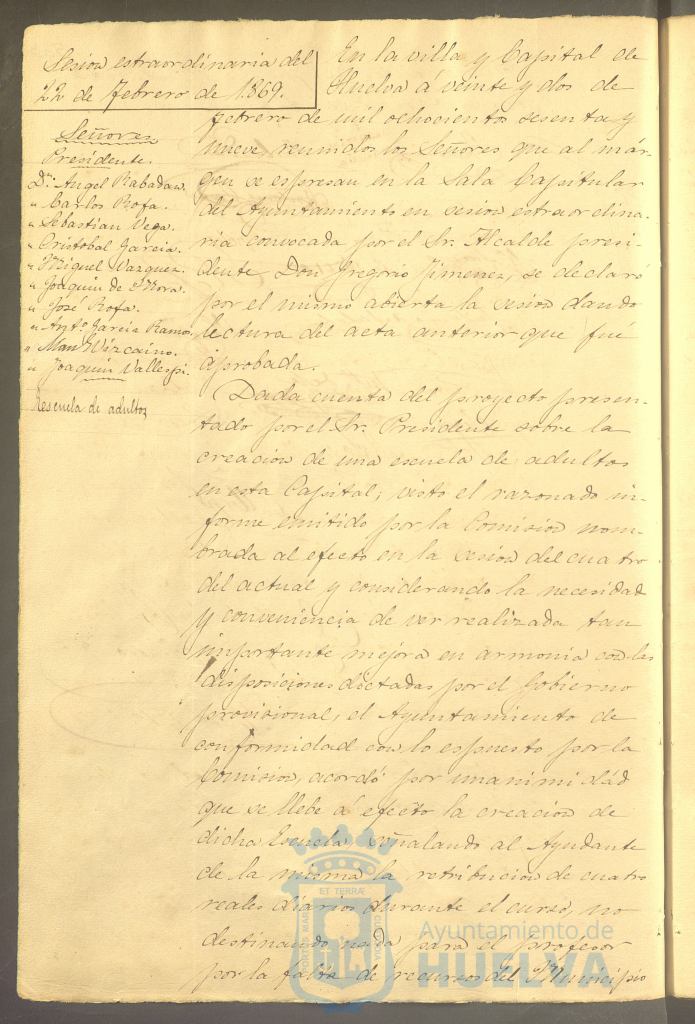 Sesion estraordinaria del
22 de Febrero de 1869.
Señores
Presidente.
Dn. Angel Rabadan.
" Carlos Rofa.
" Sebastian Vega.
" Cristobal Garcia.
" Miguel Vazquez.
" Joaquin de Mora.
" José Rofa.
" Anto. Garcia Ramos.
" Manl. Vizcaino.
" Joaquin Vallejo.
escuela de adultos
En la villa y Capital de
Huelva á veinte y dos de
febrero de mil ochocientos sesenta y
nueve, reunidos los Señores que al már-
gen se espresan en la Sala Capitular
del Ayuntamiento en sesion estraordina-
ria convocada por el Sr. Alcalde presi-
dente Don Gregorio Jimenez, se declaró
por el mismo abierta la sesion dando
lectura del acta anterior que fué
aprobada.
Dada cuenta del proyecto presen-
tado por el Sr. Presidente sobre la
creacion de una escuela de adultos
en esta Capital; visto el razonado in-
forme emitido por la Comision nom-
brada al efecto en la sesion del cuatro
del actual y considerando la necesidad
y conveniencia de ver realizada tan
importante mejora en armonia con las
disposiciones dictadas por el Gobierno
provisional, el Ayuntamiento de
conformidad con lo espuesto por la
Comision, acordó por unanimidad
que se llebe á efecto la creacion de
dicha Escuela señalando al Ayudante
de la misma la retribucion de cuatro
reales diarios durante el curso, no
destinando nada para el profesor
por la falta de recursos del Municipio
ET TERRÆ
Ayuntamiento de
HUELVA